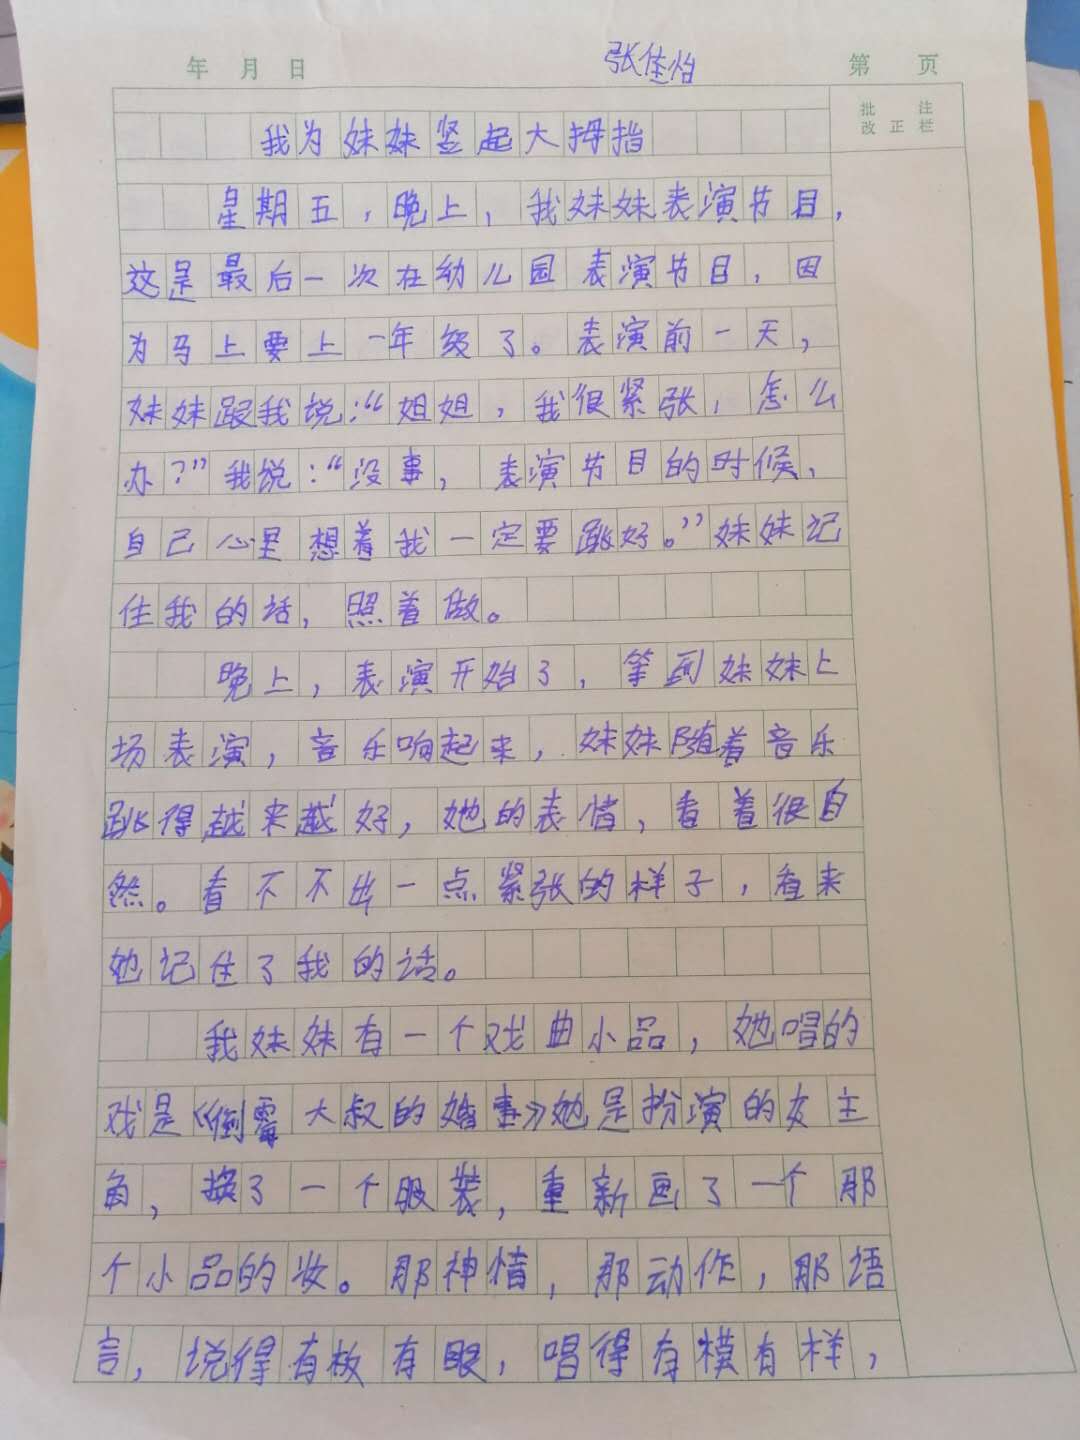 张佳怡
年 月 日
第 页
批 注
改 正 栏
我为妹妹竖起大拇指
星期五,晚上,我妹妹表演节目,
这是最后一次在幼儿园表演节目,因
为马上要上一年级了。表演前一天,
妹妹跟我说:“姐姐,我很紧张,怎么
办?”我说:“没事,表演节目的时候,
自己心里想着我一定要跳好。”妹妹记
住我的话,照着做。
晚上,表演开始了,等到妹妹上
场表演,音乐响起来,妹妹随着音乐
跳得越来越好,她的表情,看着很自
然。看不不出一点紧张的样子,看来
她记住了我的话。
我妹妹有一个戏曲小品,她唱的
戏是《倒霉大叔的婚事》她是扮演的女主
角,换了一个服装,重新画了一个那
个小品的妆。那神情,那动作,那语
言,说得有板有眼,唱得有模有样,